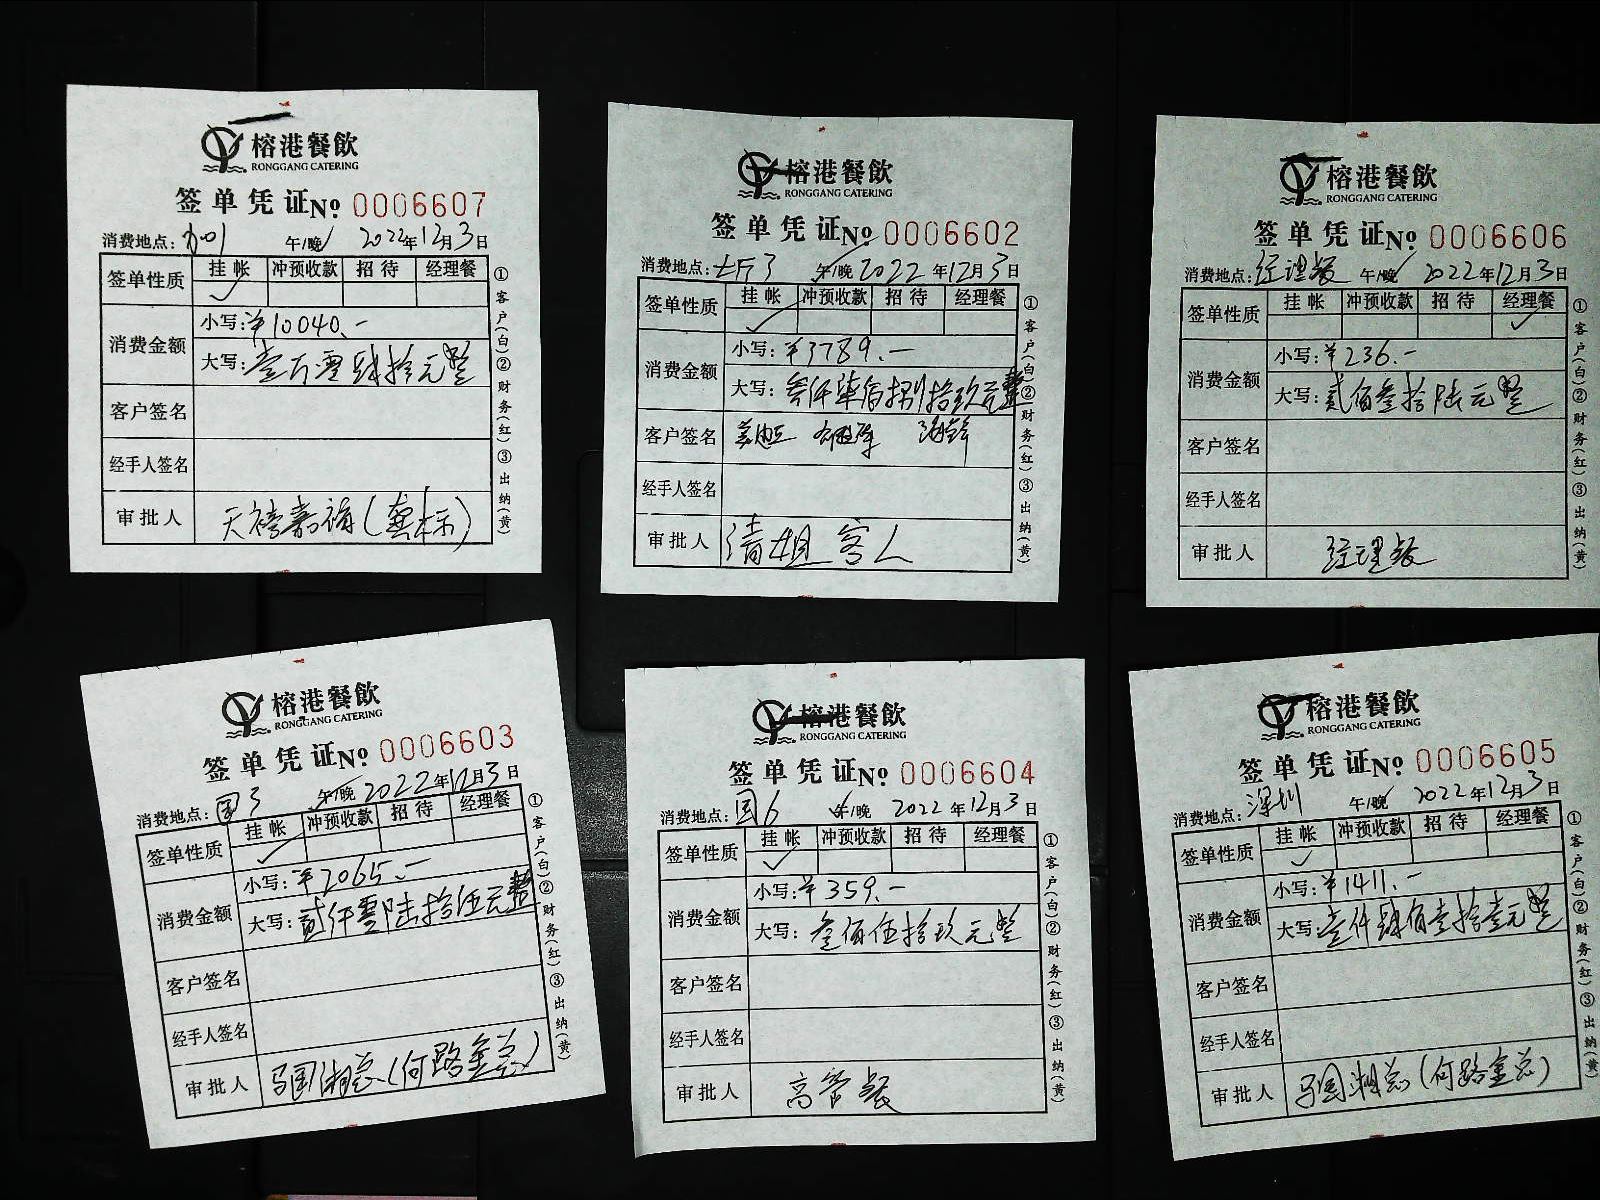 榕港餐飲
RONGGANG CATERING
签单凭证№ 0006607
消费地点: 午/晚 2022年12月3日
签单性质 挂帐 冲预收款 招待 经理餐
✓
消费金额 小写:¥10040.-
大写:壹万零肆拾元整
客户签名
经手人签名
审批人 天禧嘉福(龚标)
①客户(白)②财务(红)③出纳(黄)
榕港餐飲
RONGGANG CATERING
签单凭证№ 0006602
消费地点: 午/晚 2022年12月3日
签单性质 挂帐 冲预收款 招待 经理餐
✓
消费金额 小写:¥3789.-
大写:叁仟柒佰捌拾玖元整
客户签名
经手人签名
审批人 清姐客人
①客户(白)②财务(红)③出纳(黄)
榕港餐飲
RONGGANG CATERING
签单凭证№ 0006606
消费地点:经理餐 午/晚 2022年12月3日
签单性质 挂帐 冲预收款 招待 经理餐
✓
消费金额 小写:¥236.-
大写:贰佰叁拾陆元整
客户签名
经手人签名
审批人 经理餐
①客户(白)②财务(红)③出纳(黄)
榕港餐飲
RONGGANG CATERING
签单凭证№ 0006603
消费地点:国3 午/晚 2022年12月3日
签单性质 挂帐 冲预收款 招待 经理餐
✓
消费金额 小写:¥2065.-
大写:贰仟零陆拾伍元整
客户签名
经手人签名
审批人 马国湘总(何路金总)
①客户(白)②财务(红)③出纳(黄)
榕港餐飲
RONGGANG CATERING
签单凭证№ 0006604
消费地点:国6 午/晚 2022年12月3日
签单性质 挂帐 冲预收款 招待 经理餐
✓
消费金额 小写:¥359.-
大写:叁佰伍拾玖元整
客户签名
经手人签名
审批人 高管餐
①客户(白)②财务(红)③出纳(黄)
榕港餐飲
RONGGANG CATERING
签单凭证№ 0006605
消费地点:深圳 午/晚 2022年12月3日
签单性质 挂帐 冲预收款 招待 经理餐
✓
消费金额 小写:¥1411.-
大写:壹仟肆佰壹拾壹元整
客户签名
经手人签名
审批人 马国湘总(何路金总)
①客户(白)②财务(红)③出纳(黄)